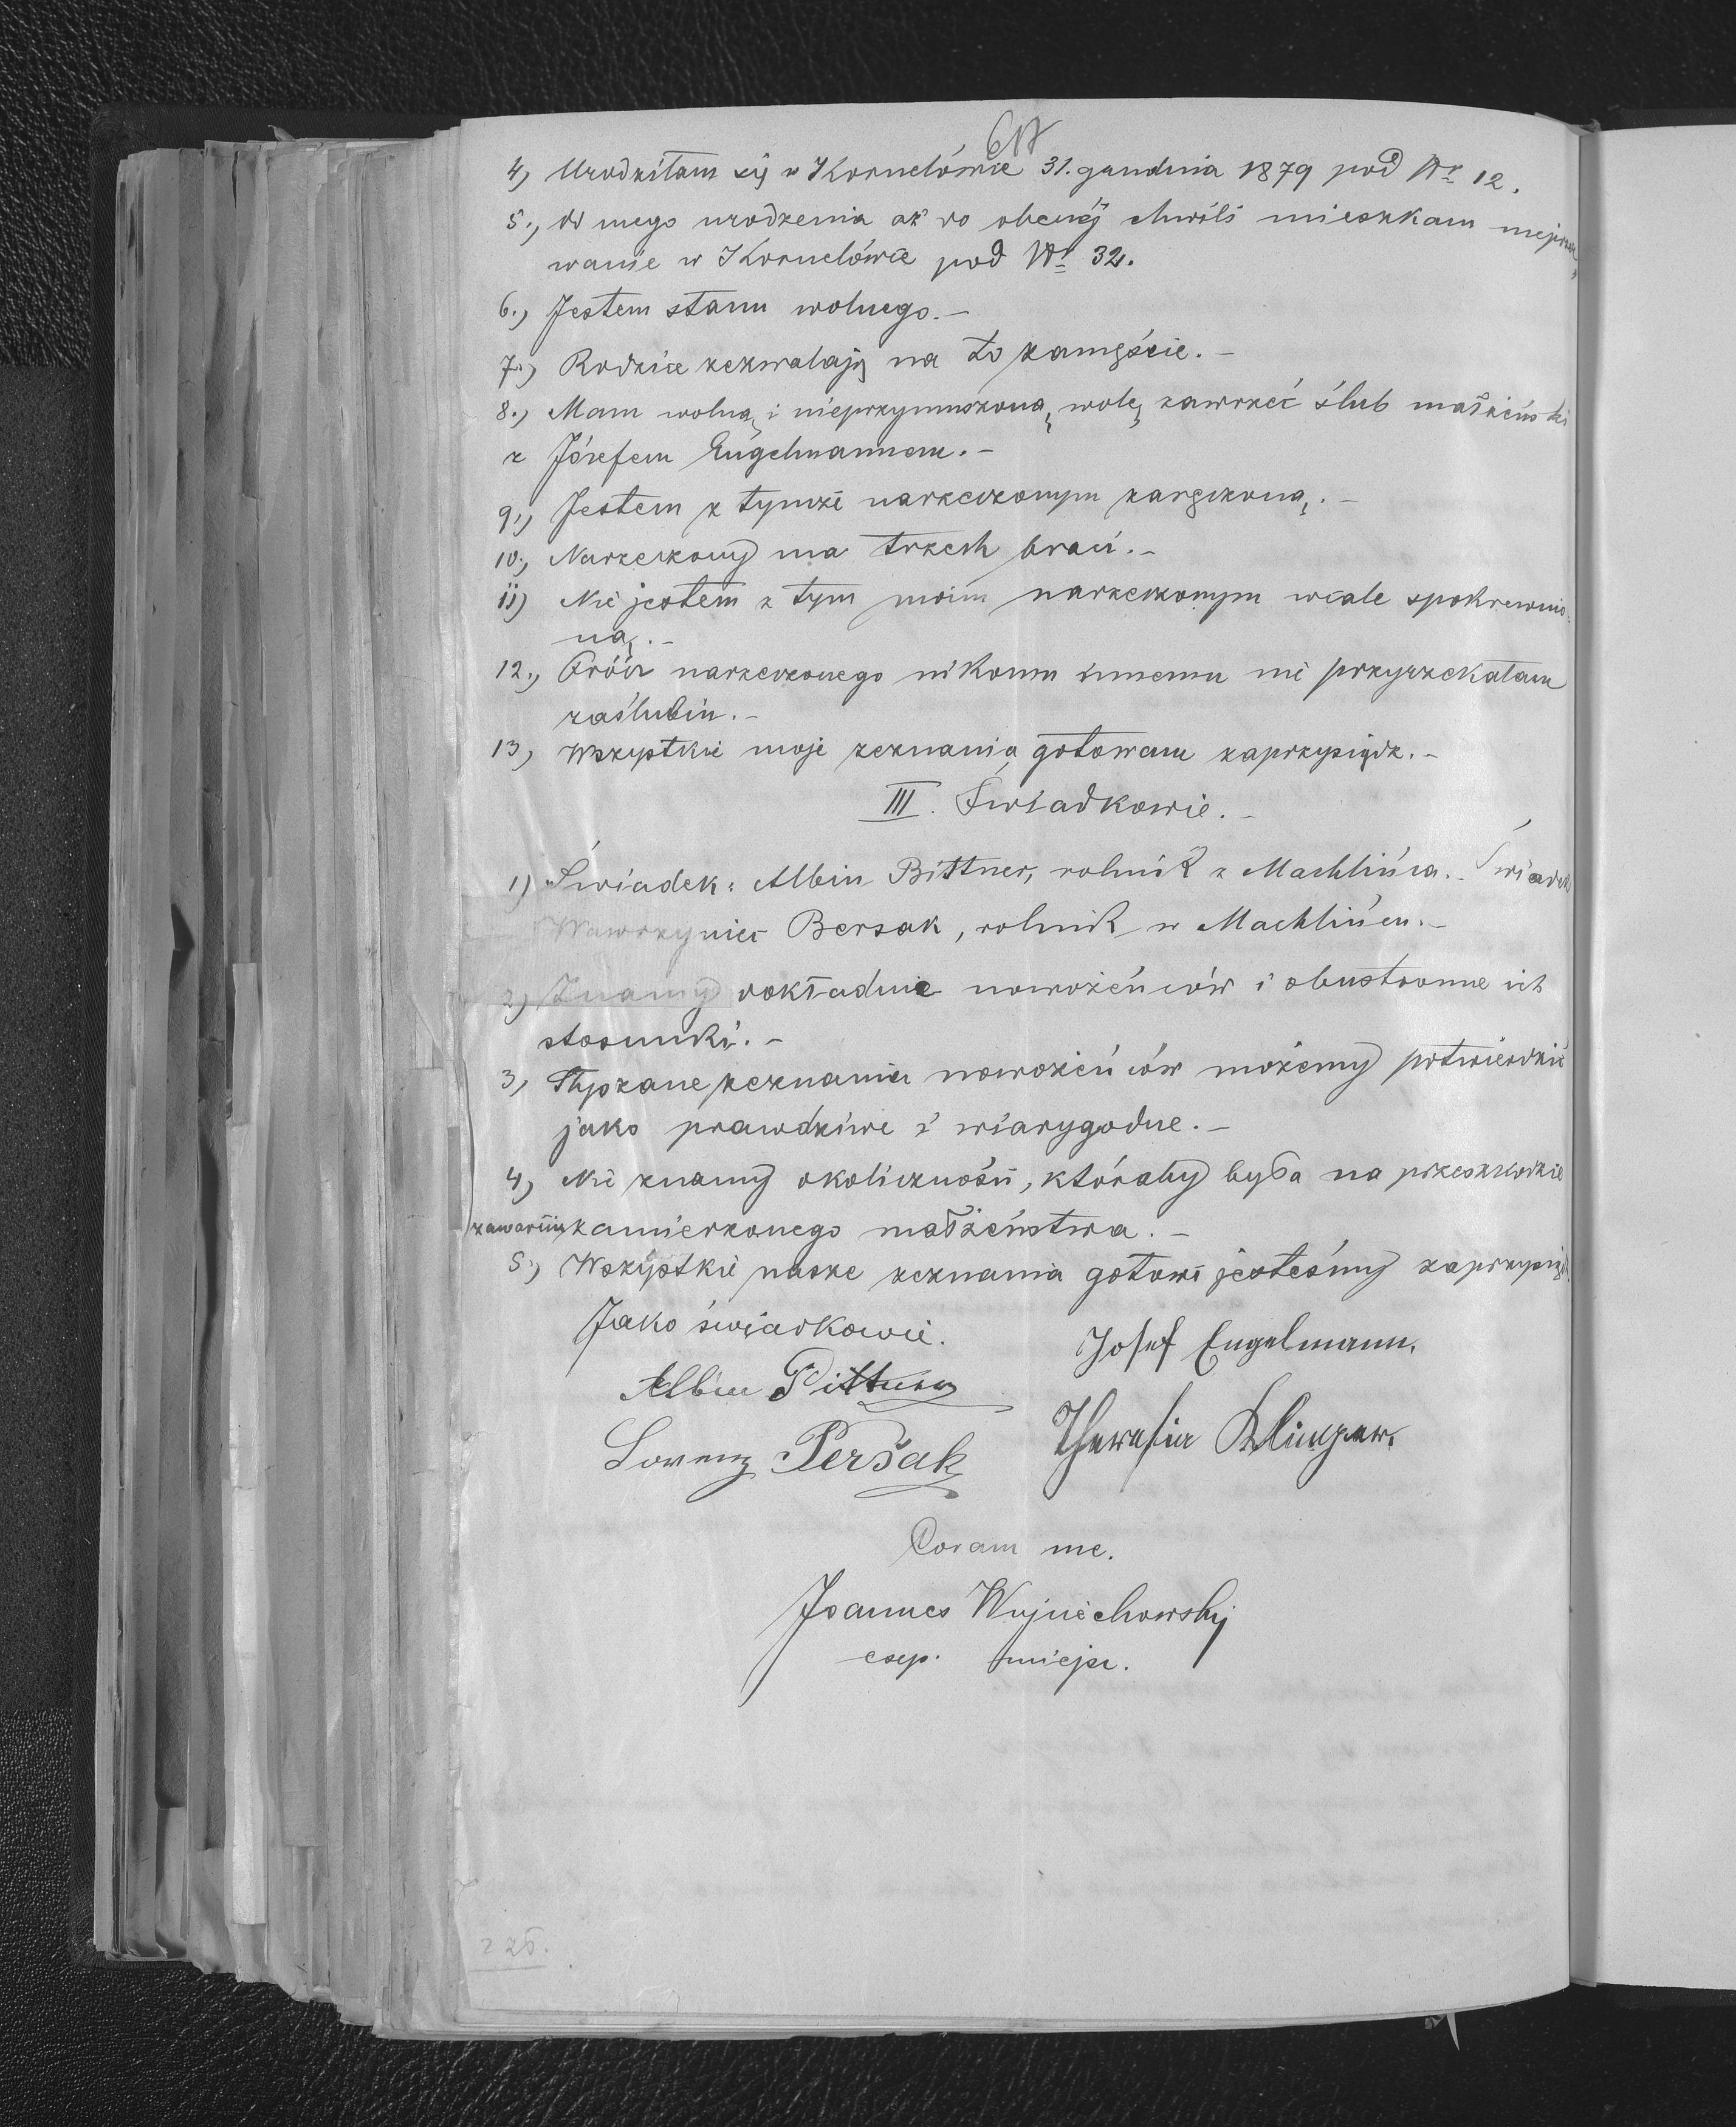 4) Urodziłam się w Kornelówce 31. grudnia 1879 pod Nr 12.
5.) Od mego urodzenia aż do obecnej chwili mieszkam nieprzer-
wanie w Kornelówce pod Nr 32.
6.) Jestem stanu wolnego.-
7.) Rodzice zezwalają na to zamęście.-
8.) Mam wolną i nieprzymuszoną wolę zawrzeć ślub małżeński
z Józefem Engelmannem.-
9.) Jestem z tymże narzeczonym zaręczoną.-
10.) Narzeczony ma trzech braci.-
11) Nie jestem z tym moim narzeczonym wcale spokrewnio-
ną.-
12.) Prócz narzeczonego nikomu innemu nie przyrzekałam
zaślubin.-
13) Wszystkie moje zeznania gotowam zaprzysiądz.-
III. Świadkowie.-
1) Świadek: Albin Bittner, rolnik z Machlińca. Świadek
Wawrzyniec Bersak, rolnik w Machlińcu.-
2) Znamy dokładnie nowożeńców i obustronne ich
stosunki.-
3) Słyszane zeznania nowożeńców możemy potwierdzić
jako prawdziwe i wiarygodne.-
4) Nie znamy okoliczności, któraby była na przeszkodzie
zawarciu zamierzonego małżeństwa.-
5.) Wszystkie nasze zeznania gotowi jesteśmy zaprzysiądz
Jako świadkowie.
Josef Engelmann.
Albin Pittner
Theresia Klinger.
Lorenz Peršak
Coram me.
Joannes Wojciechowskij
exp. miejsc.
226.